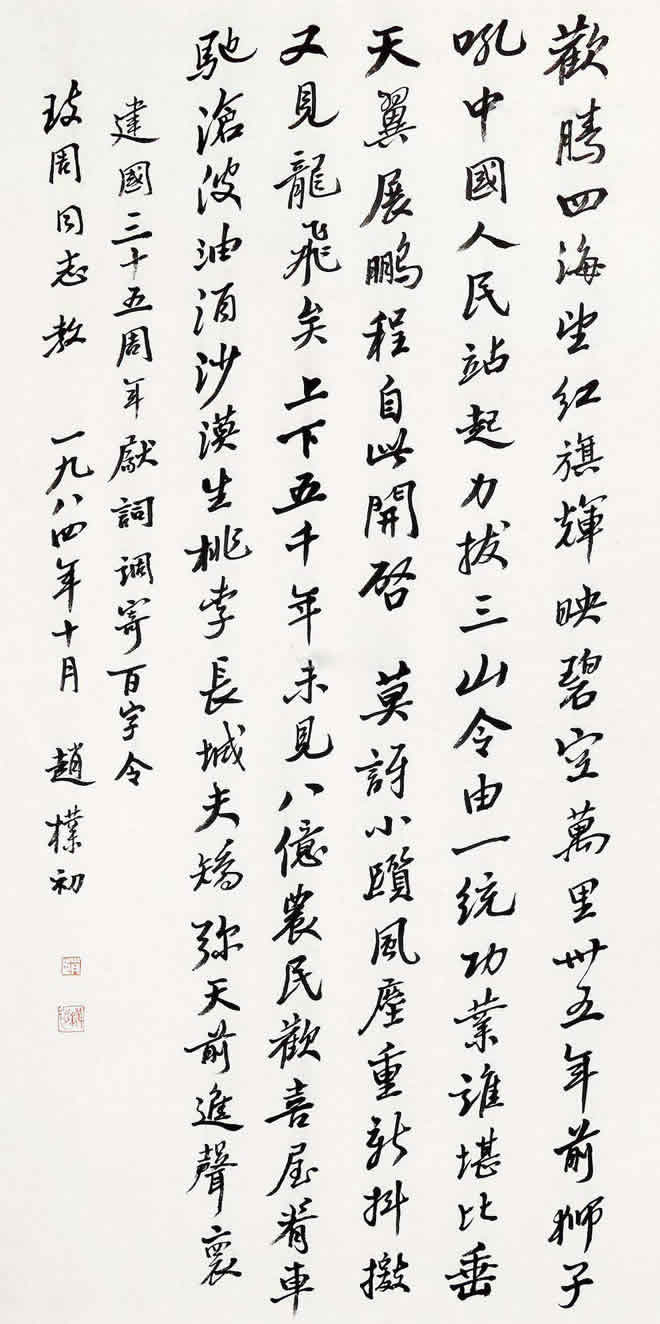 歡騰四海望紅旗輝映碧空萬里卅五年前獅子
吼中國人民站起力拔三山令由一統功業誰堪比垂
天翼展鵬程自此開啓 莫訝小躓風塵重新抖擻
又見龍飛矣上下五千年未見八億農民歡喜屋脊車
馳滄波油沙漠生桃李長城夭矯弥天前進聲裏
建國三十五周年獻詞調寄百字令
周同志教 一九八四年十月 趙樸初